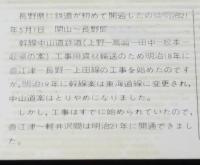 長野県に鉄道が初めて開通したのは明治21
年5月1日 関山〜長野間
幹線中山道鉄道(上野〜高崎〜田中〜松本
岐阜の案)工事用資材輸送のため明治18年
直江津〜長野〜上田線の工事を始めたのです
が、明治19年に幹線案は東海道線に変更され、
中山道案はとりやめになりました。
しかし、工事はすでに始められていたので、
直江津〜軽井沢間は明治21年に開通できまし
た。